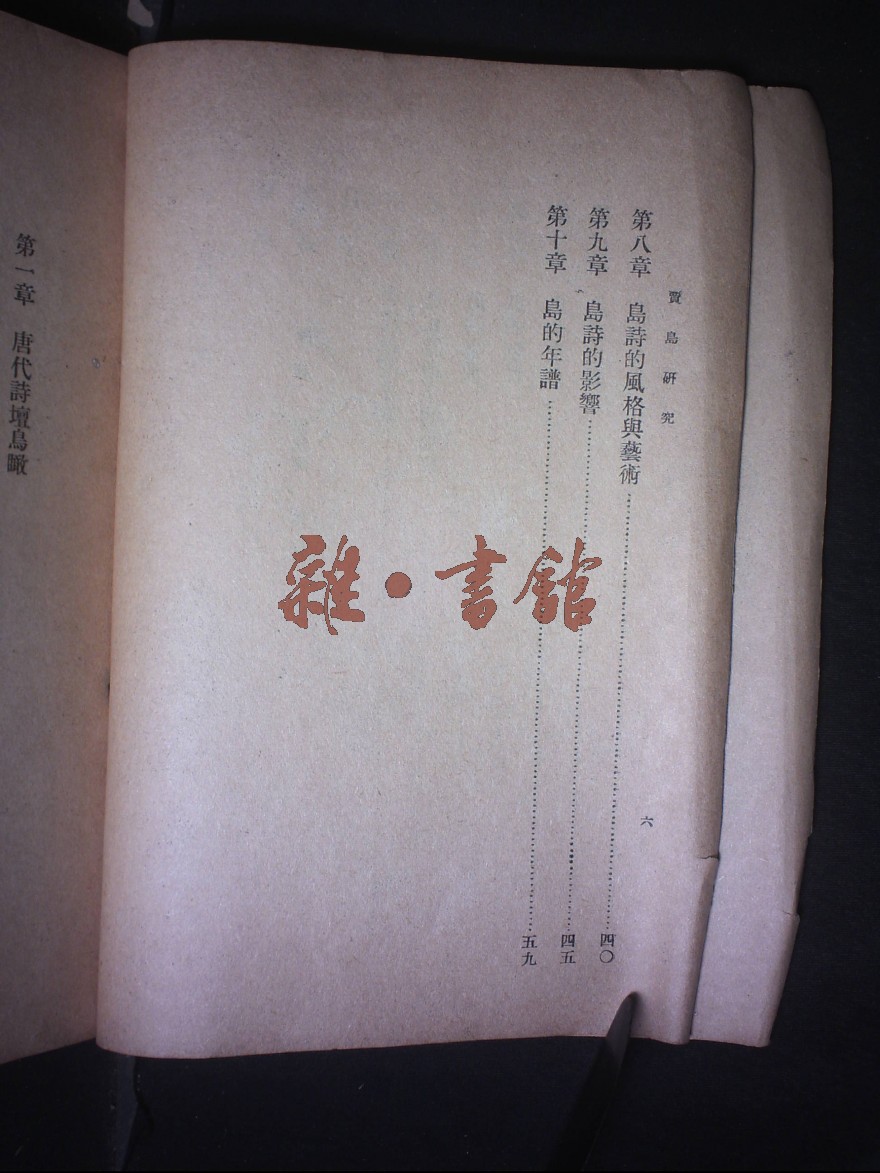 賈島研究
六
第八章　島詩的風格與藝術……四〇
第九章　島詩的影響……四五
第十章　島的年譜……五九
第一章　唐代詩壇鳥瞰
雜・書館